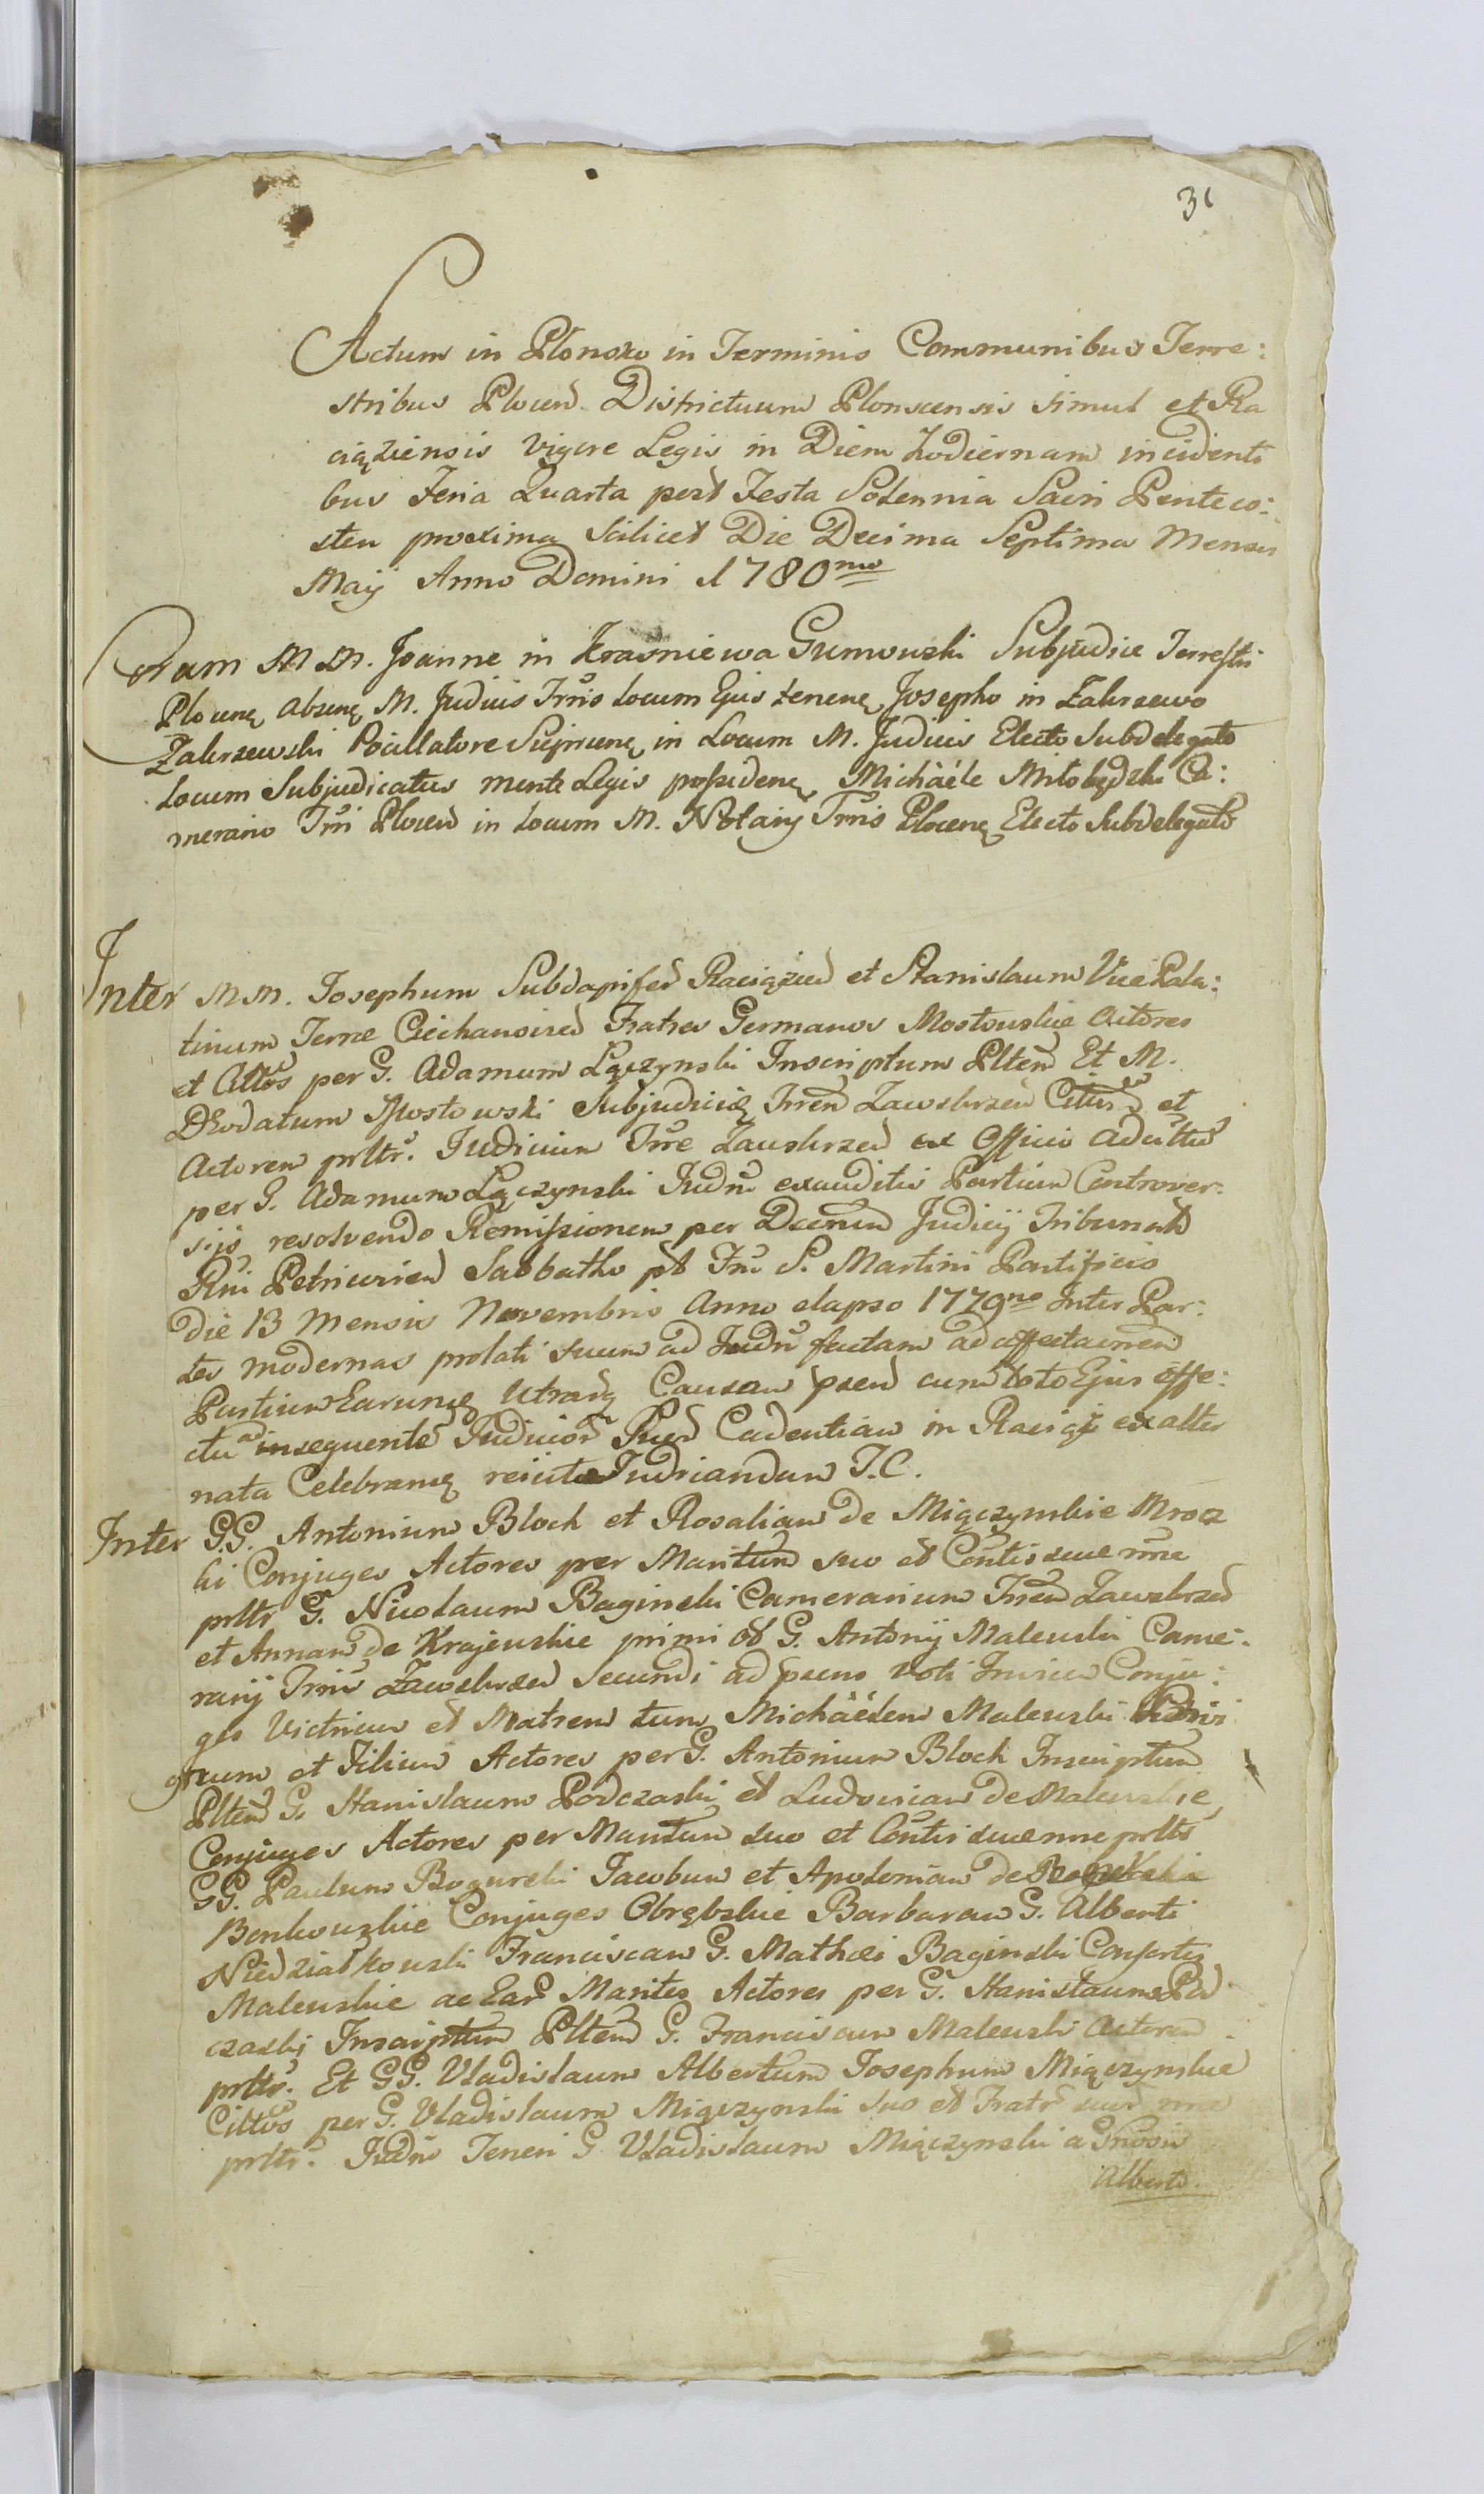 31
Actum in Płonsko in Terminis Communibus Terre:
stribus Plocen Districtuum Plonscensis simul et Ra
ciąziensis vigore Legis in Diem hodiernam incidenti
bus Feria Quarta post Festa Solennia Sacri Penteco:
sten proxima scilicet Die Decima Septima Mensis
Maij Anno Domini 1780mo
Coram M M. Joanne in Krasniewa Gumowski Subjudice Terrestri
Plocenę absenę M. Judicis Trris Locum Ejus tenenę Josepho in Zakrzewo
Zakrzewski Pocillatore Sieprcenę in Locum M. Judicis Electo Subdelegato
Locum Subjudicatus mente Legis possidenę Michaele Miłobędzki Ca:
merario Trri Plocen in Locum M. Notarij Trris Plocenę Electo Subdelegato
Inter MM. Josephum Subdapifer Raciązien et Stanislaum Vice Pala:
tinum Terrae Ciechanovien Fratres Germanos Mostowskie Actores
et Cittos per G. Adamum Łączynski Inscriptum Plten Et M.
Deodatum Mostowski Subjudicię Trren Zawskrzen Cittu et
Actorem prltr. Judicium Trre Zawskrzen ex Officio adcittu
per G. Adamum Łączynski Judm exauditis Partium Controver:
sijs resolvendo Remissionem per Decretum Judicij Tribunalis
Rni Petricovien Sabbatho pt Fm S. Martini Pontificis
Die 13 Mensis Novembris Anno elapso 1779no Inter Par:
tes modernas prolati suum ad Judm factam ad affectationem
Partium Earunę Utrarq Causam psen cum toto Ejus effe:
ctu ad insequente Judicior Cadentiam in Raciąż ex alter
nata Celebranę reiicit Judicandam T.C.
Inter GG. Antonium Bloch et Rosaliam de Miączynskie Mroz
ki Conjuges Actores per Maritum suo et Contis suae nne
prltr G. Nicolaum Baginski Camerarium Trren Zawskrzen
et Annam de Krajewskie primi ob G. Antonij Malewski Came:
rarij Trris Zawskrzen secundi ad psens voti Invicem Conju:
ges Victricum et Matrem tum Michaelem Malewski Privi
gnum et Filium Actores per G. Antonium Bloch Inscriptum
Plten G. Stanislaum Podczaski et Ludovicam de Malewskie
Conjuges Actores per Maritum suo et Contis suae nne prltr
GG. Paulum Bogurski Jacobum et Apoloniam de
Bonkowskie Conjuges Obrębskie Barbaram G. Alberti
Niedziałkowski Franciscam G. Mathaei Baginski Consortes
Malewskie ac Ear Maritos Actores per G. Stanislaum Pod
czaski Inscriptum Plten G. Franciscum Malewski Actorem
prltr. Et GG. Vladislaum Albertum Josephum Miączynskie
Cittos per G. Vladislaum Miączynski suo et Fratr suor nne
prltr. Judm Teneri G. Vladislaum Miączynski a Gnosis
Alberto.